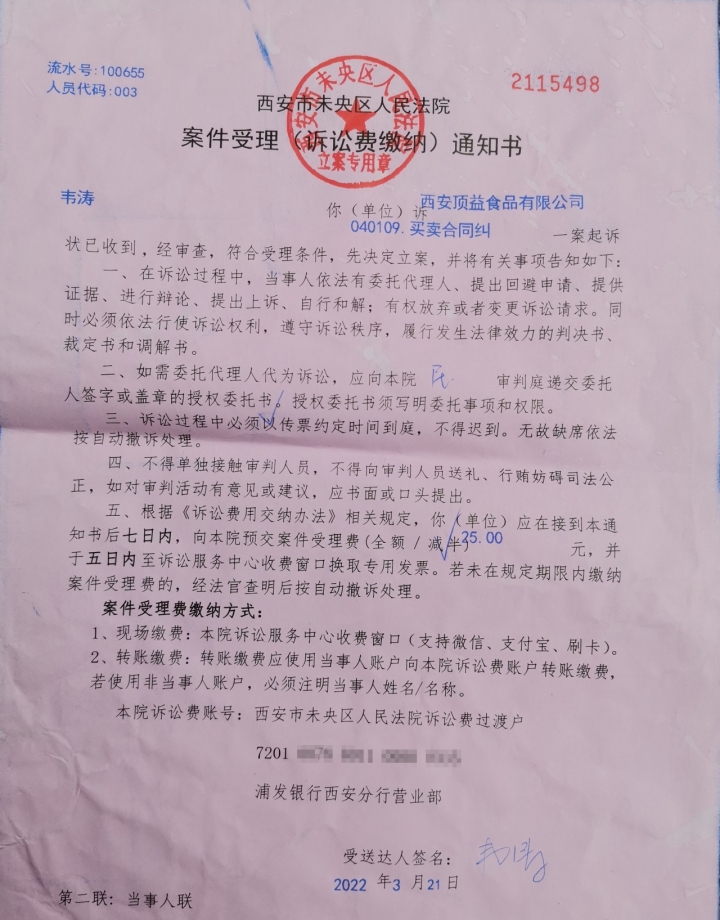 流水号:100655
人员代码:003
2115498
西安市未央区人民法院
案件受理（诉讼费缴纳）通知书
西安市未央区人民法院
立案专用章
韦涛
你（单位）诉 西安顶益食品有限公司
040109.买卖合同纠 一案起诉
状已收到，经审查，符合受理条件，先决定立案，并将有关事项告知如下：
一、在诉讼过程中，当事人依法有委托代理人、提出回避申请、提供
证据、进行辩论、提出上诉、自行和解；有权放弃或者变更诉讼请求。同
时必须依法行使诉讼权利，遵守诉讼秩序，履行发生法律效力的判决书、
裁定书和调解书。
二、如需委托代理人代为诉讼，应向本院 民 审判庭递交委托
人签字或盖章的授权委托书。授权委托书须写明委托事项和权限。
三、诉讼过程中必须以传票约定时间到庭，不得迟到。无故缺席依法
按自动撤诉处理。
四、不得单独接触审判人员，不得向审判人员送礼、行贿妨碍司法公
正，如对审判活动有意见或建议，应书面或口头提出。
五、根据《诉讼费用交纳办法》相关规定，你（单位）应在接到本通
知书后七日内，向本院预交案件受理费(全额 / 减半) 25.00 元，并
于五日内至诉讼服务中心收费窗口换取专用发票。若未在规定期限内缴纳
案件受理费的，经法官查明后按自动撤诉处理。
案件受理费缴纳方式：
1、现场缴费：本院诉讼服务中心收费窗口（支持微信、支付宝、刷卡）。
2、转账缴费：转账缴费应使用当事人账户向本院诉讼费账户转账缴费，
若使用非当事人账户，必须注明当事人姓名/名称。
本院诉讼费账号：西安市未央区人民法院诉讼费过渡户
7201
浦发银行西安分行营业部
受送达人签名： 韦涛
2022 年3 月21日
第二联：当事人联